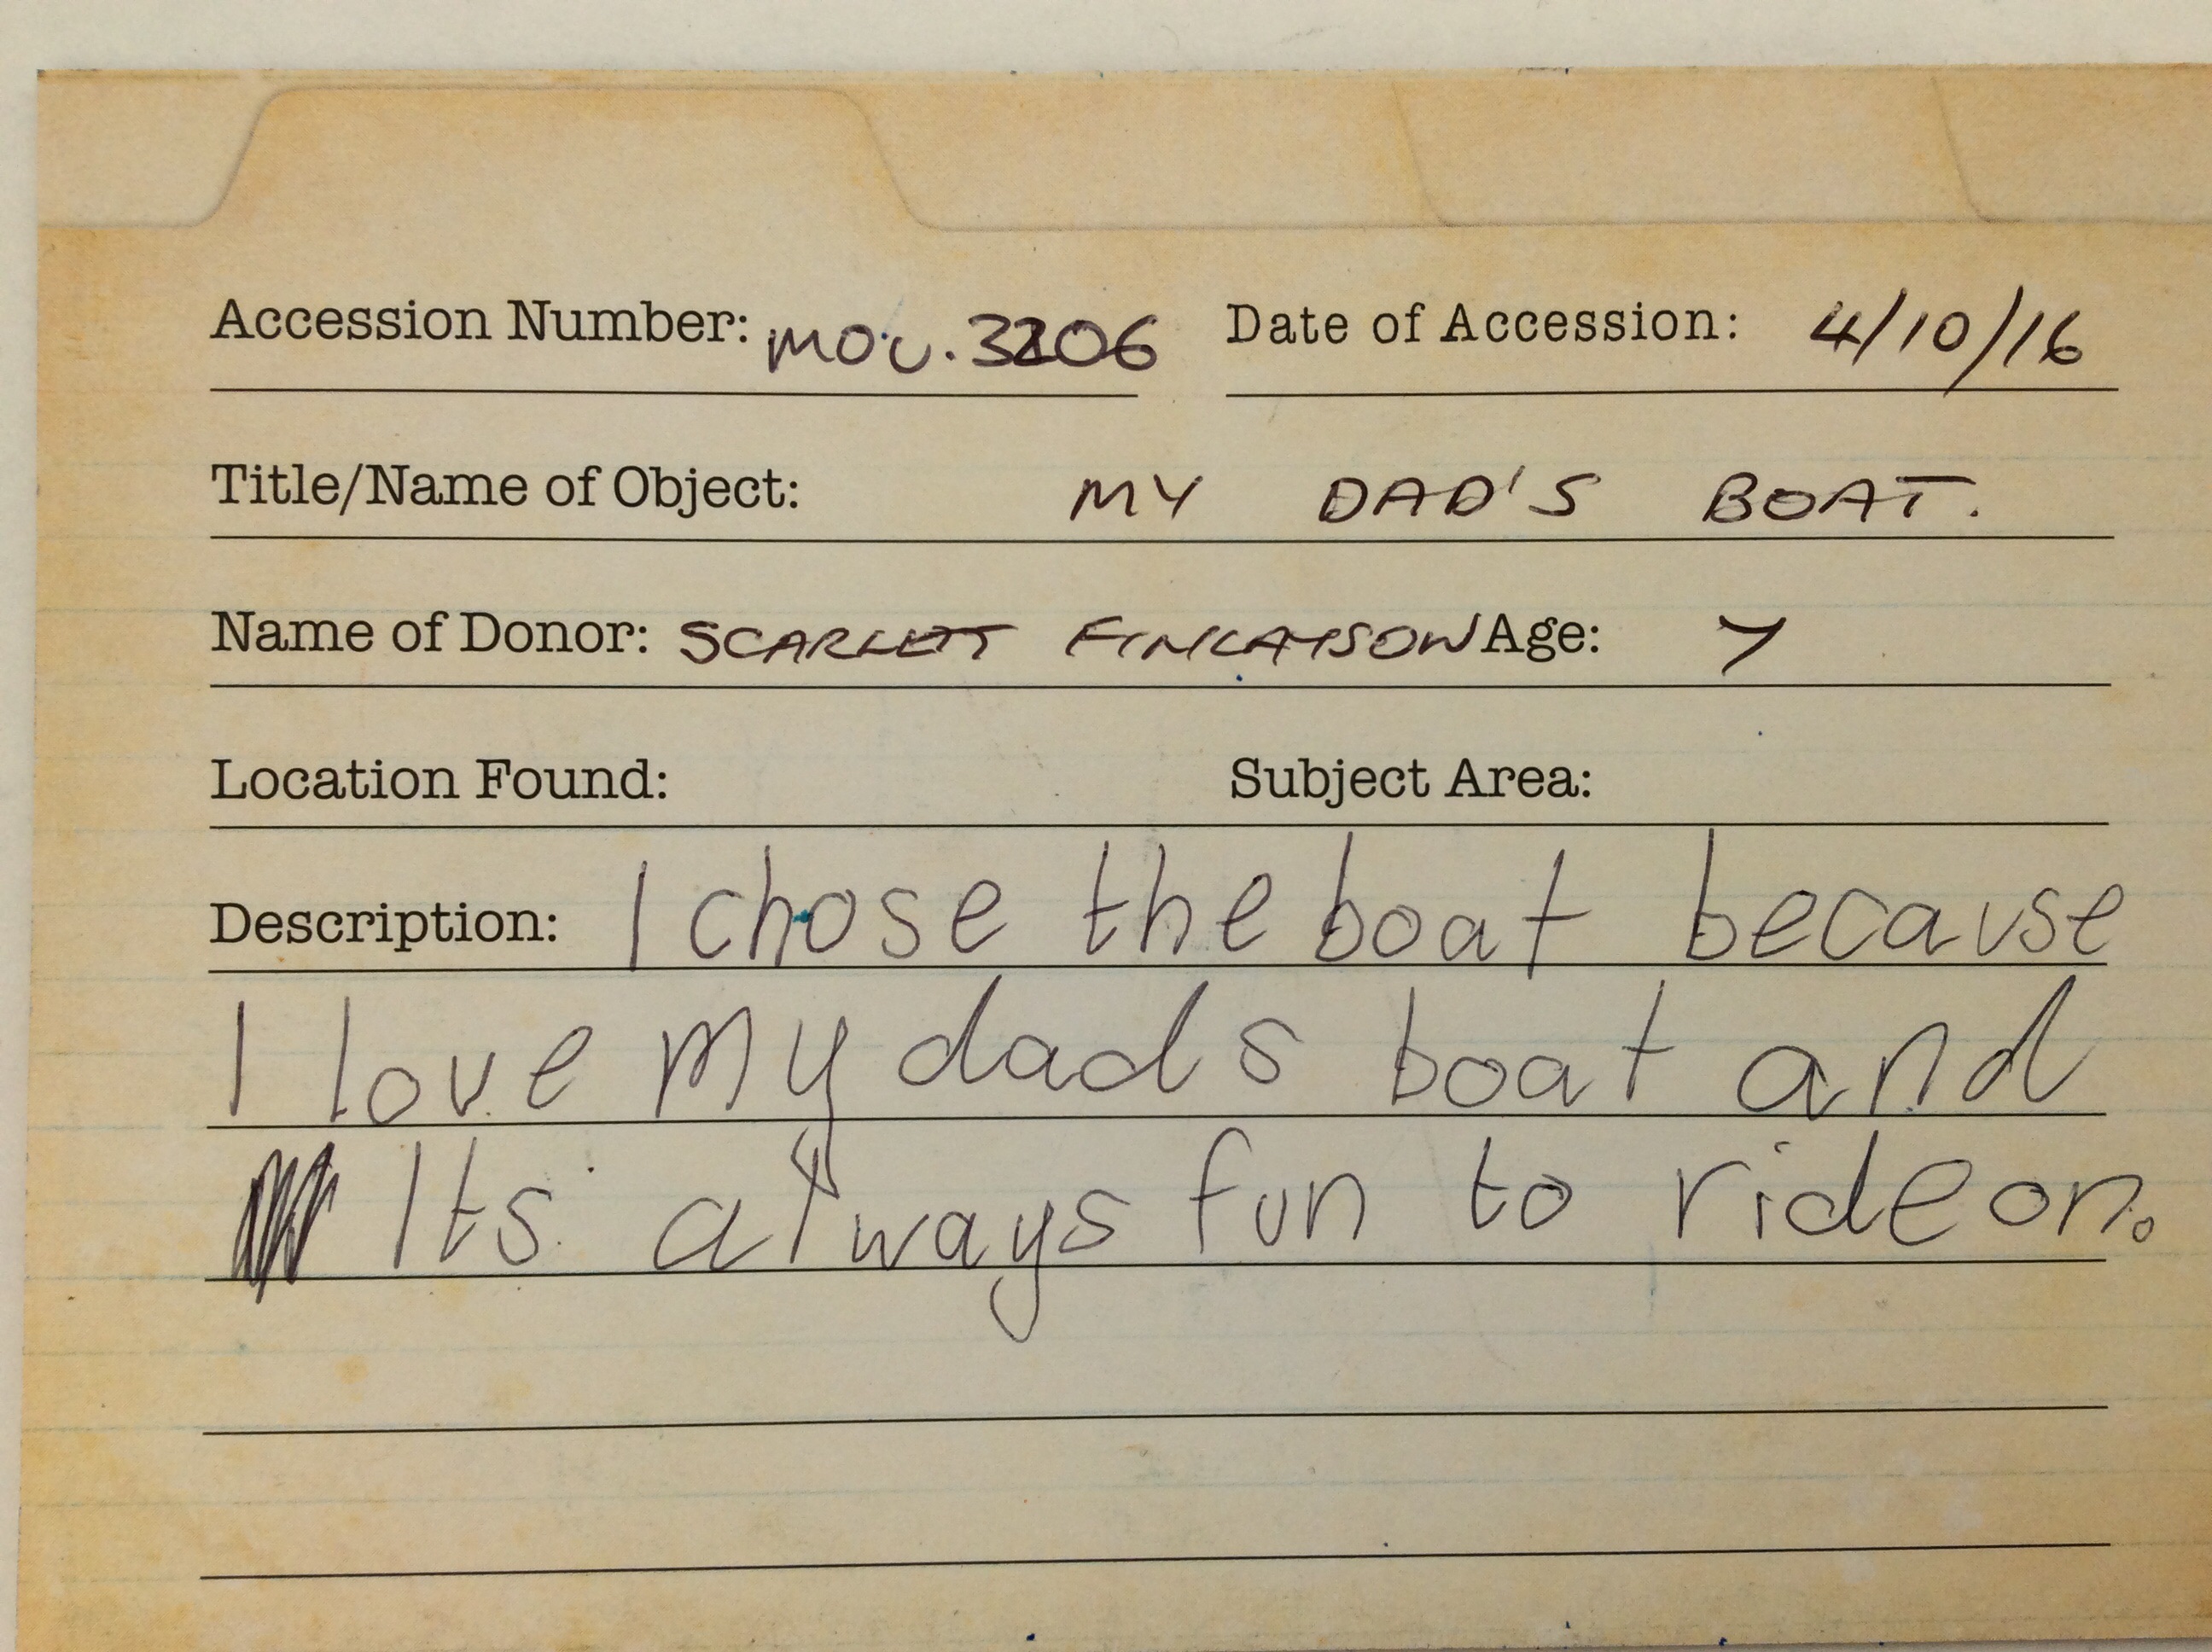 Accession Number: MOU.3206 Date of Accession: 4/10/16
Title/Name of Object: MY DAD'S BOAT.
Name of Donor: SCARLETT FINLAYSON Age: 7
Location Found: Subject Area:
Description: I chose the boat because
I love my dads boat and
Its always fun to ride on.